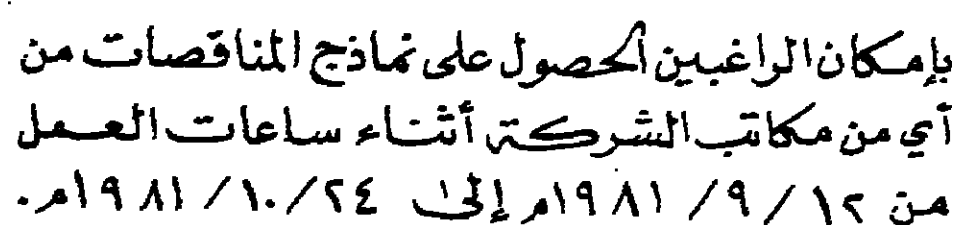 بإمكان الراغبين الحصول على نماذج المناقصات من
أي من مكاتب الشركة أثناء ساعات العمل
من ١٢ / ٩ / ١٩٨١م إلى ٢٤ / ١٠ / ١٩٨١م.